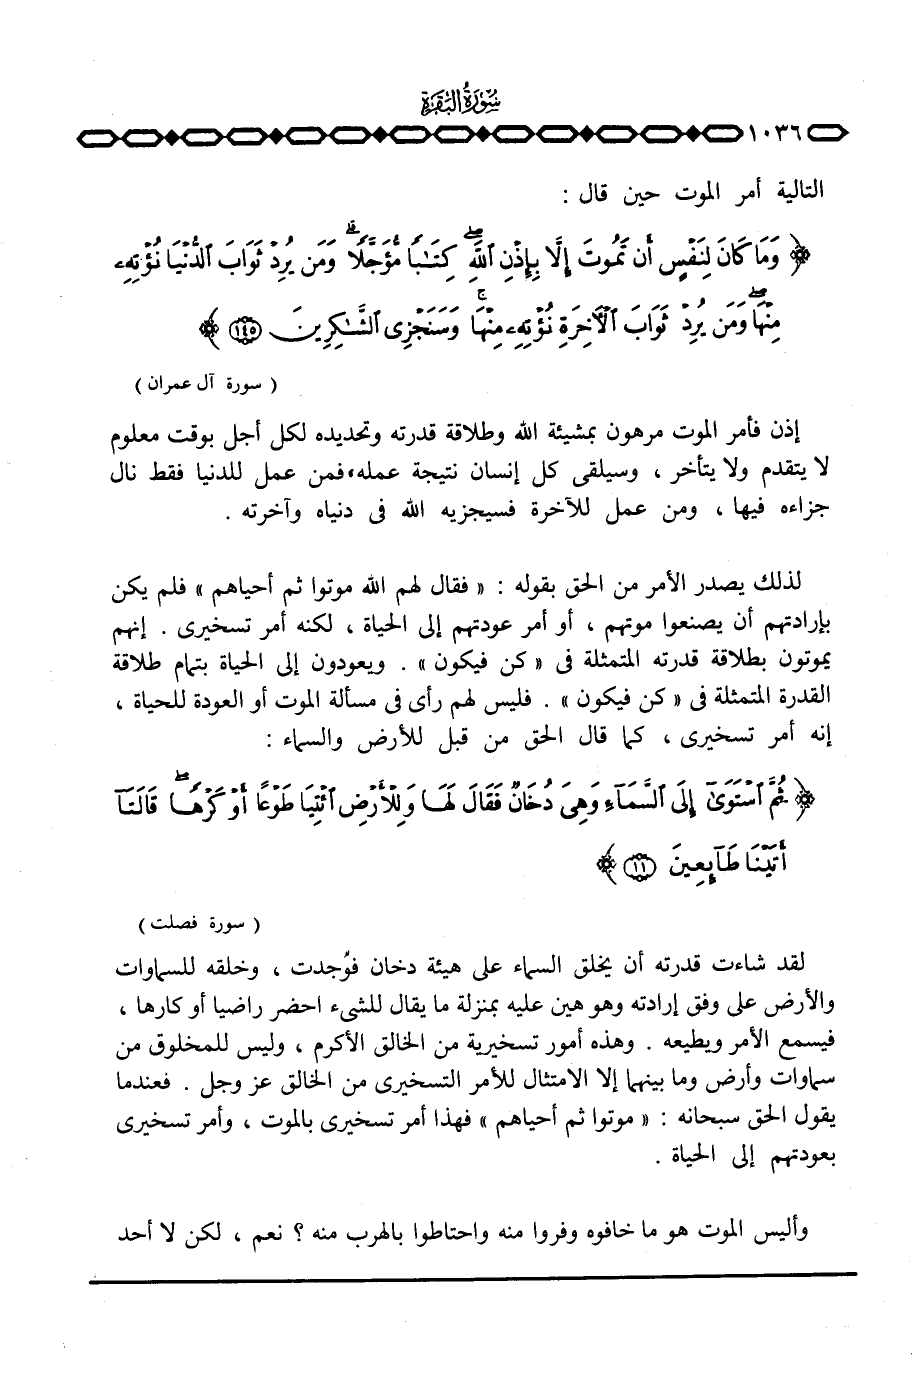 سُورَةُ البَقَرَةِ
١٠٣٦
التالية أمر الموت حين قال :
﴿ وَمَا كَانَ لِنَفْسٍ أَن تَمُوتَ إِلَّا بِإِذْنِ ٱللَّهِ كِتَٰبًا مُّؤَجَّلًا ۗ وَمَن يُرِدْ ثَوَابَ ٱلدُّنْيَا نُؤْتِهِۦ
مِنْهَا ۖ وَمَن يُرِدْ ثَوَابَ ٱلْآخِرَةِ نُؤْتِهِۦ مِنْهَا ۚ وَسَنَجْزِى ٱلشَّٰكِرِينَ ﴿١٤٥﴾ ﴾
( سورة آل عمران )
إذن فأمر الموت مرهون بمشيئة الله وطلاقة قدرته وتحديده لكل أجل بوقت معلوم
لا يتقدم ولا يتأخر ، وسيلقى كل إنسان نتيجة عمله، فمن عمل للدنيا فقط نال
جزاءه فيها ، ومن عمل للآخرة فسيجزيه الله فى دنياه وآخرته .
لذلك يصدر الأمر من الحق بقوله : « فقال لهم الله موتوا ثم أحياهم » فلم يكن
بإرادتهم أن يصنعوا موتهم ، أو أمر عودتهم إلى الحياة ، لكنه أمر تسخيرى . إنهم
يموتون بطلاقة قدرته المتمثلة فى « كن فيكون » . ويعودون إلى الحياة بتمام طلاقة
القدرة المتمثلة فى « كن فيكون » . فليس لهم رأى فى مسألة الموت أو العودة للحياة ،
إنه أمر تسخيرى ، كما قال الحق من قبل للأرض والسماء :
﴿ ثُمَّ ٱسْتَوَىٰٓ إِلَى ٱلسَّمَآءِ وَهِىَ دُخَانٌ فَقَالَ لَهَا وَلِلْأَرْضِ ٱئْتِيَا طَوْعًا أَوْ كَرْهًا ۖ قَالَتَآ
أَتَيْنَا طَآئِعِينَ ﴿١١﴾ ﴾
( سورة فصلت )
لقد شاءت قدرته أن يخلق السماء على هيئة دخان فوُجدت ، وخلقه للسماوات
والأرض على وفق إرادته وهو هين عليه بمنزلة ما يقال للشىء احضر راضيا أو كارها ،
فيسمع الأمر ويطيعه . وهذه أمور تسخيرية من الخالق الأكرم ، وليس للمخلوق من
سماوات وأرض وما بينهما إلا الامتثال للأمر التسخيرى من الخالق عز وجل . فعندما
يقول الحق سبحانه : « موتوا ثم أحياهم » فهذا أمر تسخيرى بالموت ، وأمر تسخيرى
بعودتهم إلى الحياة .
وأليس الموت هو ما خافوه وفروا منه واحتاطوا بالهرب منه ؟ نعم ، لكن لا أحد